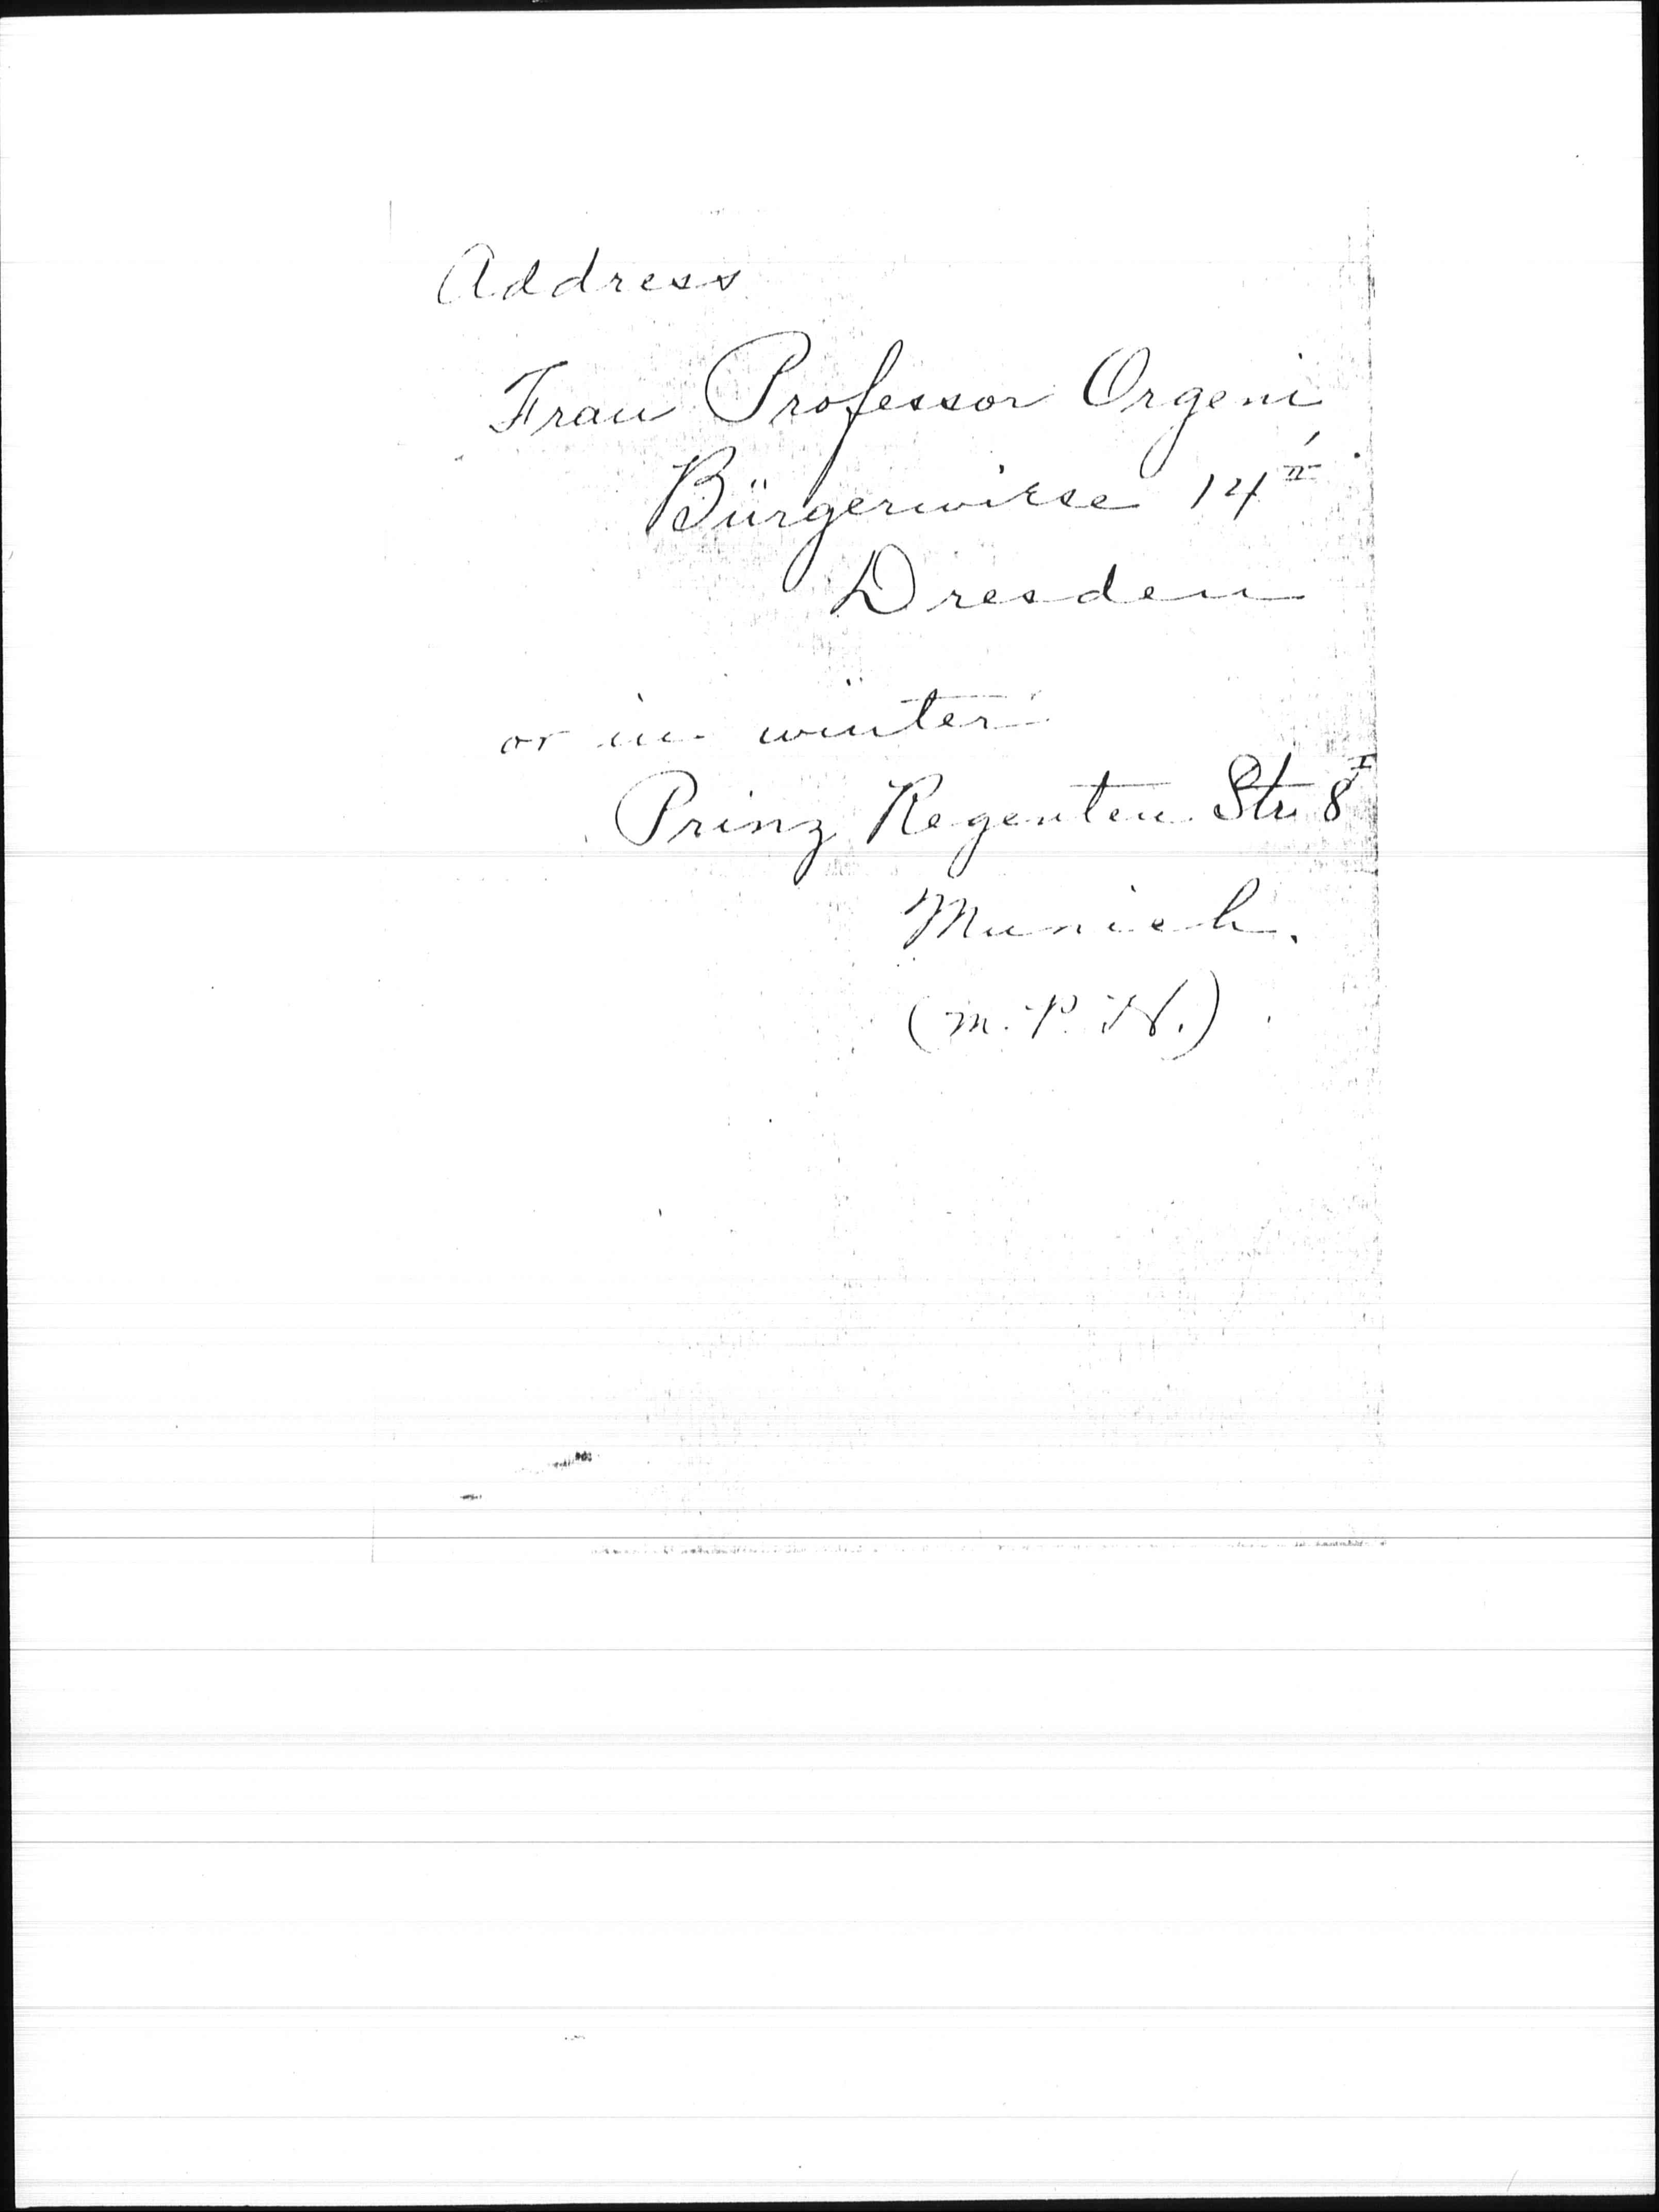 Address
Frau Professor Orgeni,
Bürgerwiese 14 II
Dresden
or in winter
Prinz Regenten Str. 8 I
Munich.
(M. P. H.)